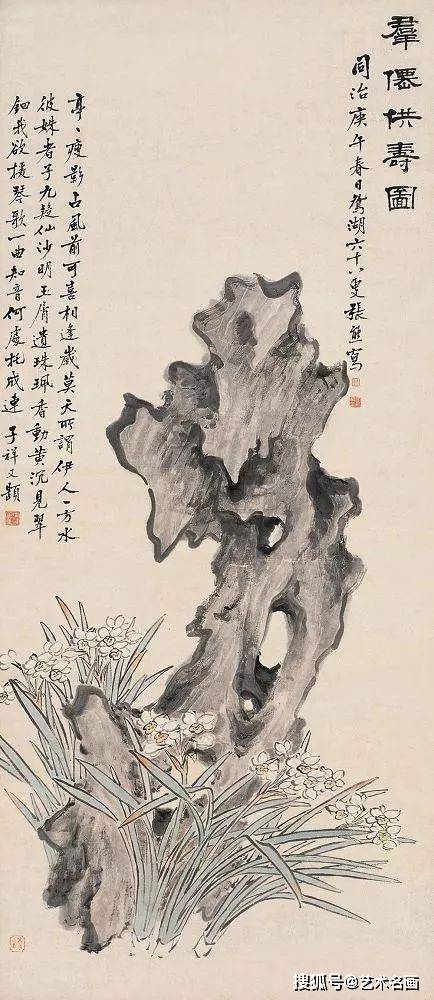 羣僊供壽圖
同治庚午春日鴛湖六十八叟張熊寫
亭〻瘦影占風前可喜相逢歲莫天所謂伊人一方水
彼姝者子九疑仙沙明玉屑遺珠珮香動黄沉見翠
鈿我欲援琴歌一曲知音何處托成連 子祥又題
搜狐号@艺术名画